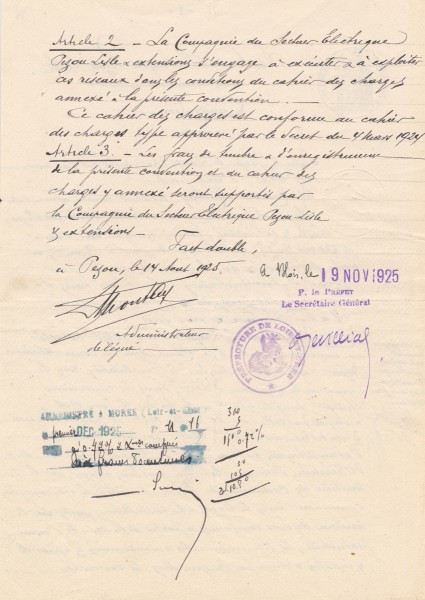 Article 2 - La Compagnie du Secteur Electrique
Pezou Lisle & extensions s'engage à exécuter & à exploiter
ces réseaux dans les conditions du cahier des charges
annexé à la présente convention.
Ce cahier des charges est conforme au cahier
des charges type approuvé par le Décret du 4 Mars 1924
Article 3. - Les frais de timbre & d'enregistrement
de la présente convention et du cahier des
charges y annexé seront supportés par
la Compagnie du Secteur Electrique Pezou-Lisle
& extensions -
Fait double,
à Pezou, le 14 Aout 1925.
à Blois, le 19 NOV 1925
P. le PRÉFET
Le Secrétaire Général
Administrateur
délégué
PRÉFECTURE DE LOIR-ET-CHER
ENREGISTRÉ A MORÉE (Loir-et-Cher)
premier DEC. 1925
à 0.72 %
0.72 %